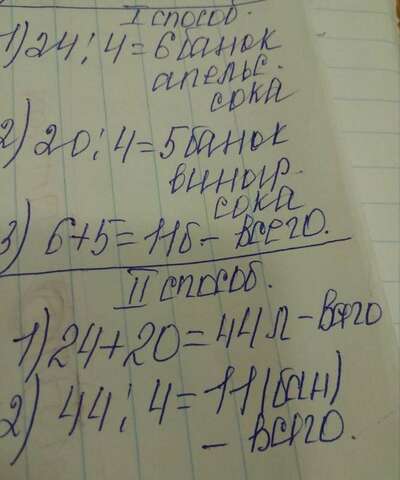 I способ.
1) 24 : 4 = 6 банок
апельс.
сока
2) 20 : 4 = 5 банок
виногр.
сока
3) 6 + 5 = 11 б - всего.
II способ.
1) 24 + 20 = 44 л - всего
2) 44 : 4 = 11 (бан)
- всего.